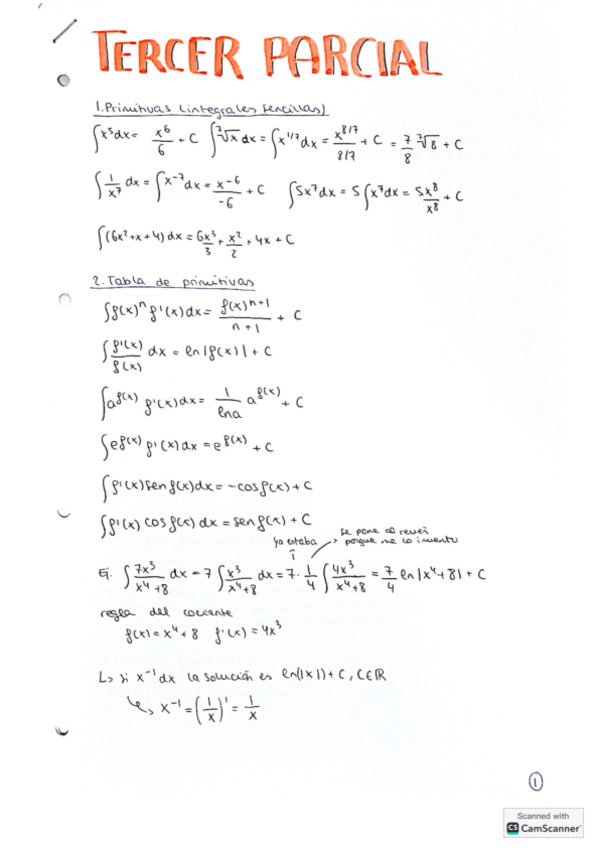 TERCER PARCIAL
1. Primitivas (integrales sencillas)
∫x⁵dx = x⁶/6 + C ∫⁷√x dx = ∫x^(1/7) dx = x^(8/7)/(8/7) + C = 7/8 ⁷√8 + C
∫1/x⁷ dx = ∫x⁻⁷dx = x-6/-6 + C ∫5x⁷dx = 5∫x⁷dx = 5x⁸/x8 + C
∫(6x²+x+4)dx = 6x³/3 + x²/2 + 4x + C
2. Tabla de primitivas
∫f(x)ⁿ f'(x)dx = f(x)ⁿ⁺¹/(n+1) + C
∫f'(x)/f(x) dx = ln|f(x)| + C
∫a^f(x) f'(x)dx = 1/lna a^f(x) + C
∫e^f(x) f'(x)dx = e^f(x) + C
∫f'(x)sen f(x)dx = -cosf(x) + C
∫f'(x) cos f(x) dx = senf(x) + C
se pone al revés
ya estaba → porque me lo invento
Ej. ∫7x³/(x⁴+8) dx = 7∫x³/(x⁴+8) dx = 7·1/4 ∫4x³/(x⁴+8) = 7/4 ln|x⁴+8| + C
regla del cociente
f(x) = x⁴+8 f'(x) = 4x³
↳ si x⁻¹dx la solución es ln(|x|) + C, C∈ℝ
↳ x⁻¹ = (1/x)' = 1/x
1
Scanned with
CS CamScanner